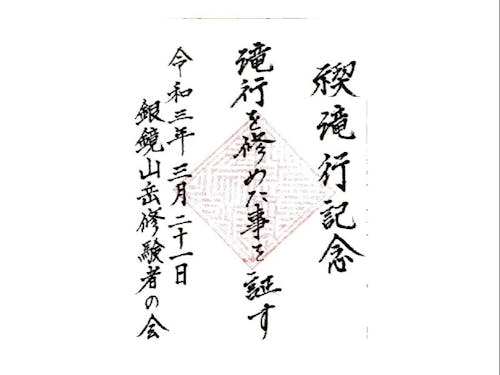 禊滝行記念
滝行を修めた事を証す
令和三年三月二十一日
銀鏡山岳修験者の会